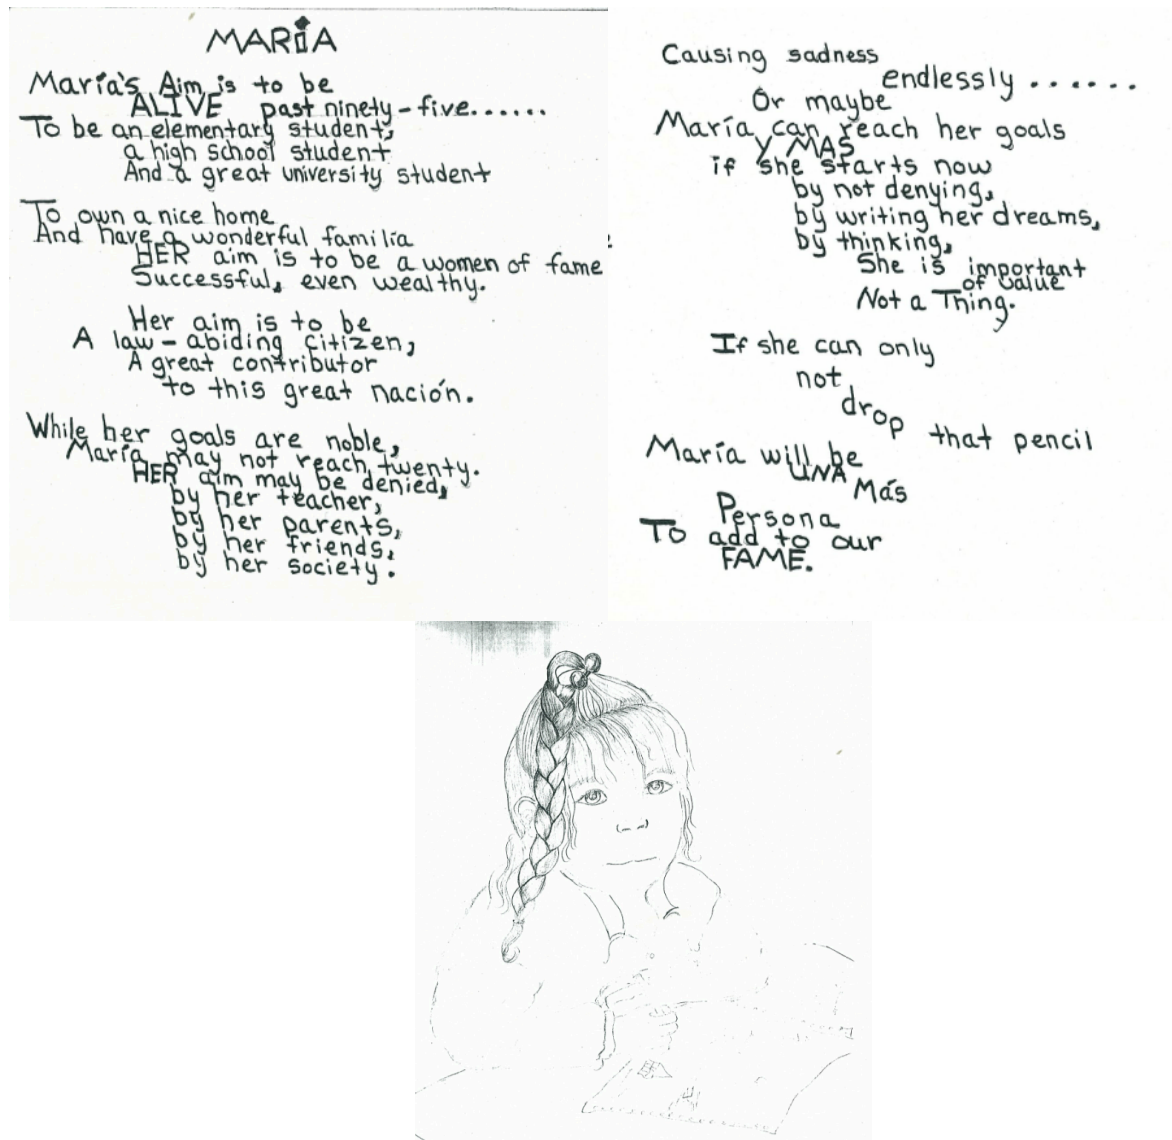 MARíA
María's Aim is to be
ALIVE past ninety-five......
To be an elementary student,
a high school student
And a great university student
To own a nice home
And have a wonderful familia
HER aim is to be a women of fame
Successful, even wealthy.
Her aim is to be
A law-abiding citizen,
A great contributor
to this great nación.
While her goals are noble,
María may not reach twenty.
HER aim may be denied,
by her teacher,
by her parents,
by her friends,
by her society.
Causing sadness
endlessly ......
Or maybe
María can reach her goals
Y MAS
if she starts now
by not denying,
by writing her dreams,
by thinking,
She is important
of value
Not a Thing.
If she can only
not
drop that pencil
María will be
UNA
Más
Persona
To add to our
FAME.